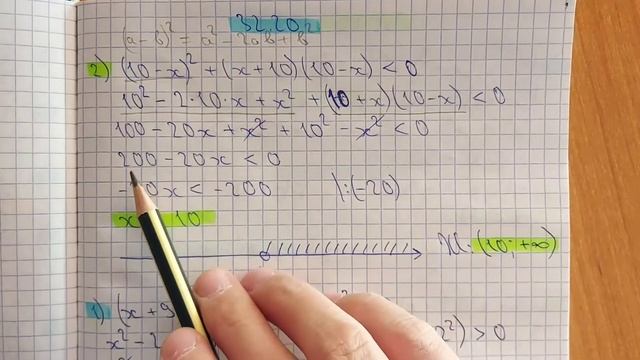 32.20
(a-b)² = a² - 2ab + b²
2) (10-x)² + (x+10)(10-x) < 0
10² - 2·10·x + x² + (10+x)(10-x) < 0
100 - 20x + x² + 10² - x² < 0
200 - 20x < 0
-20x < -200 |:(-20)
x 10
x: (10; +∞)
1) (x + 9
x² - 2 2²) > 0